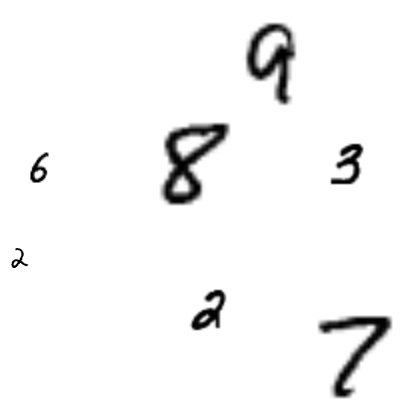 9
6 8 3
2
2
7